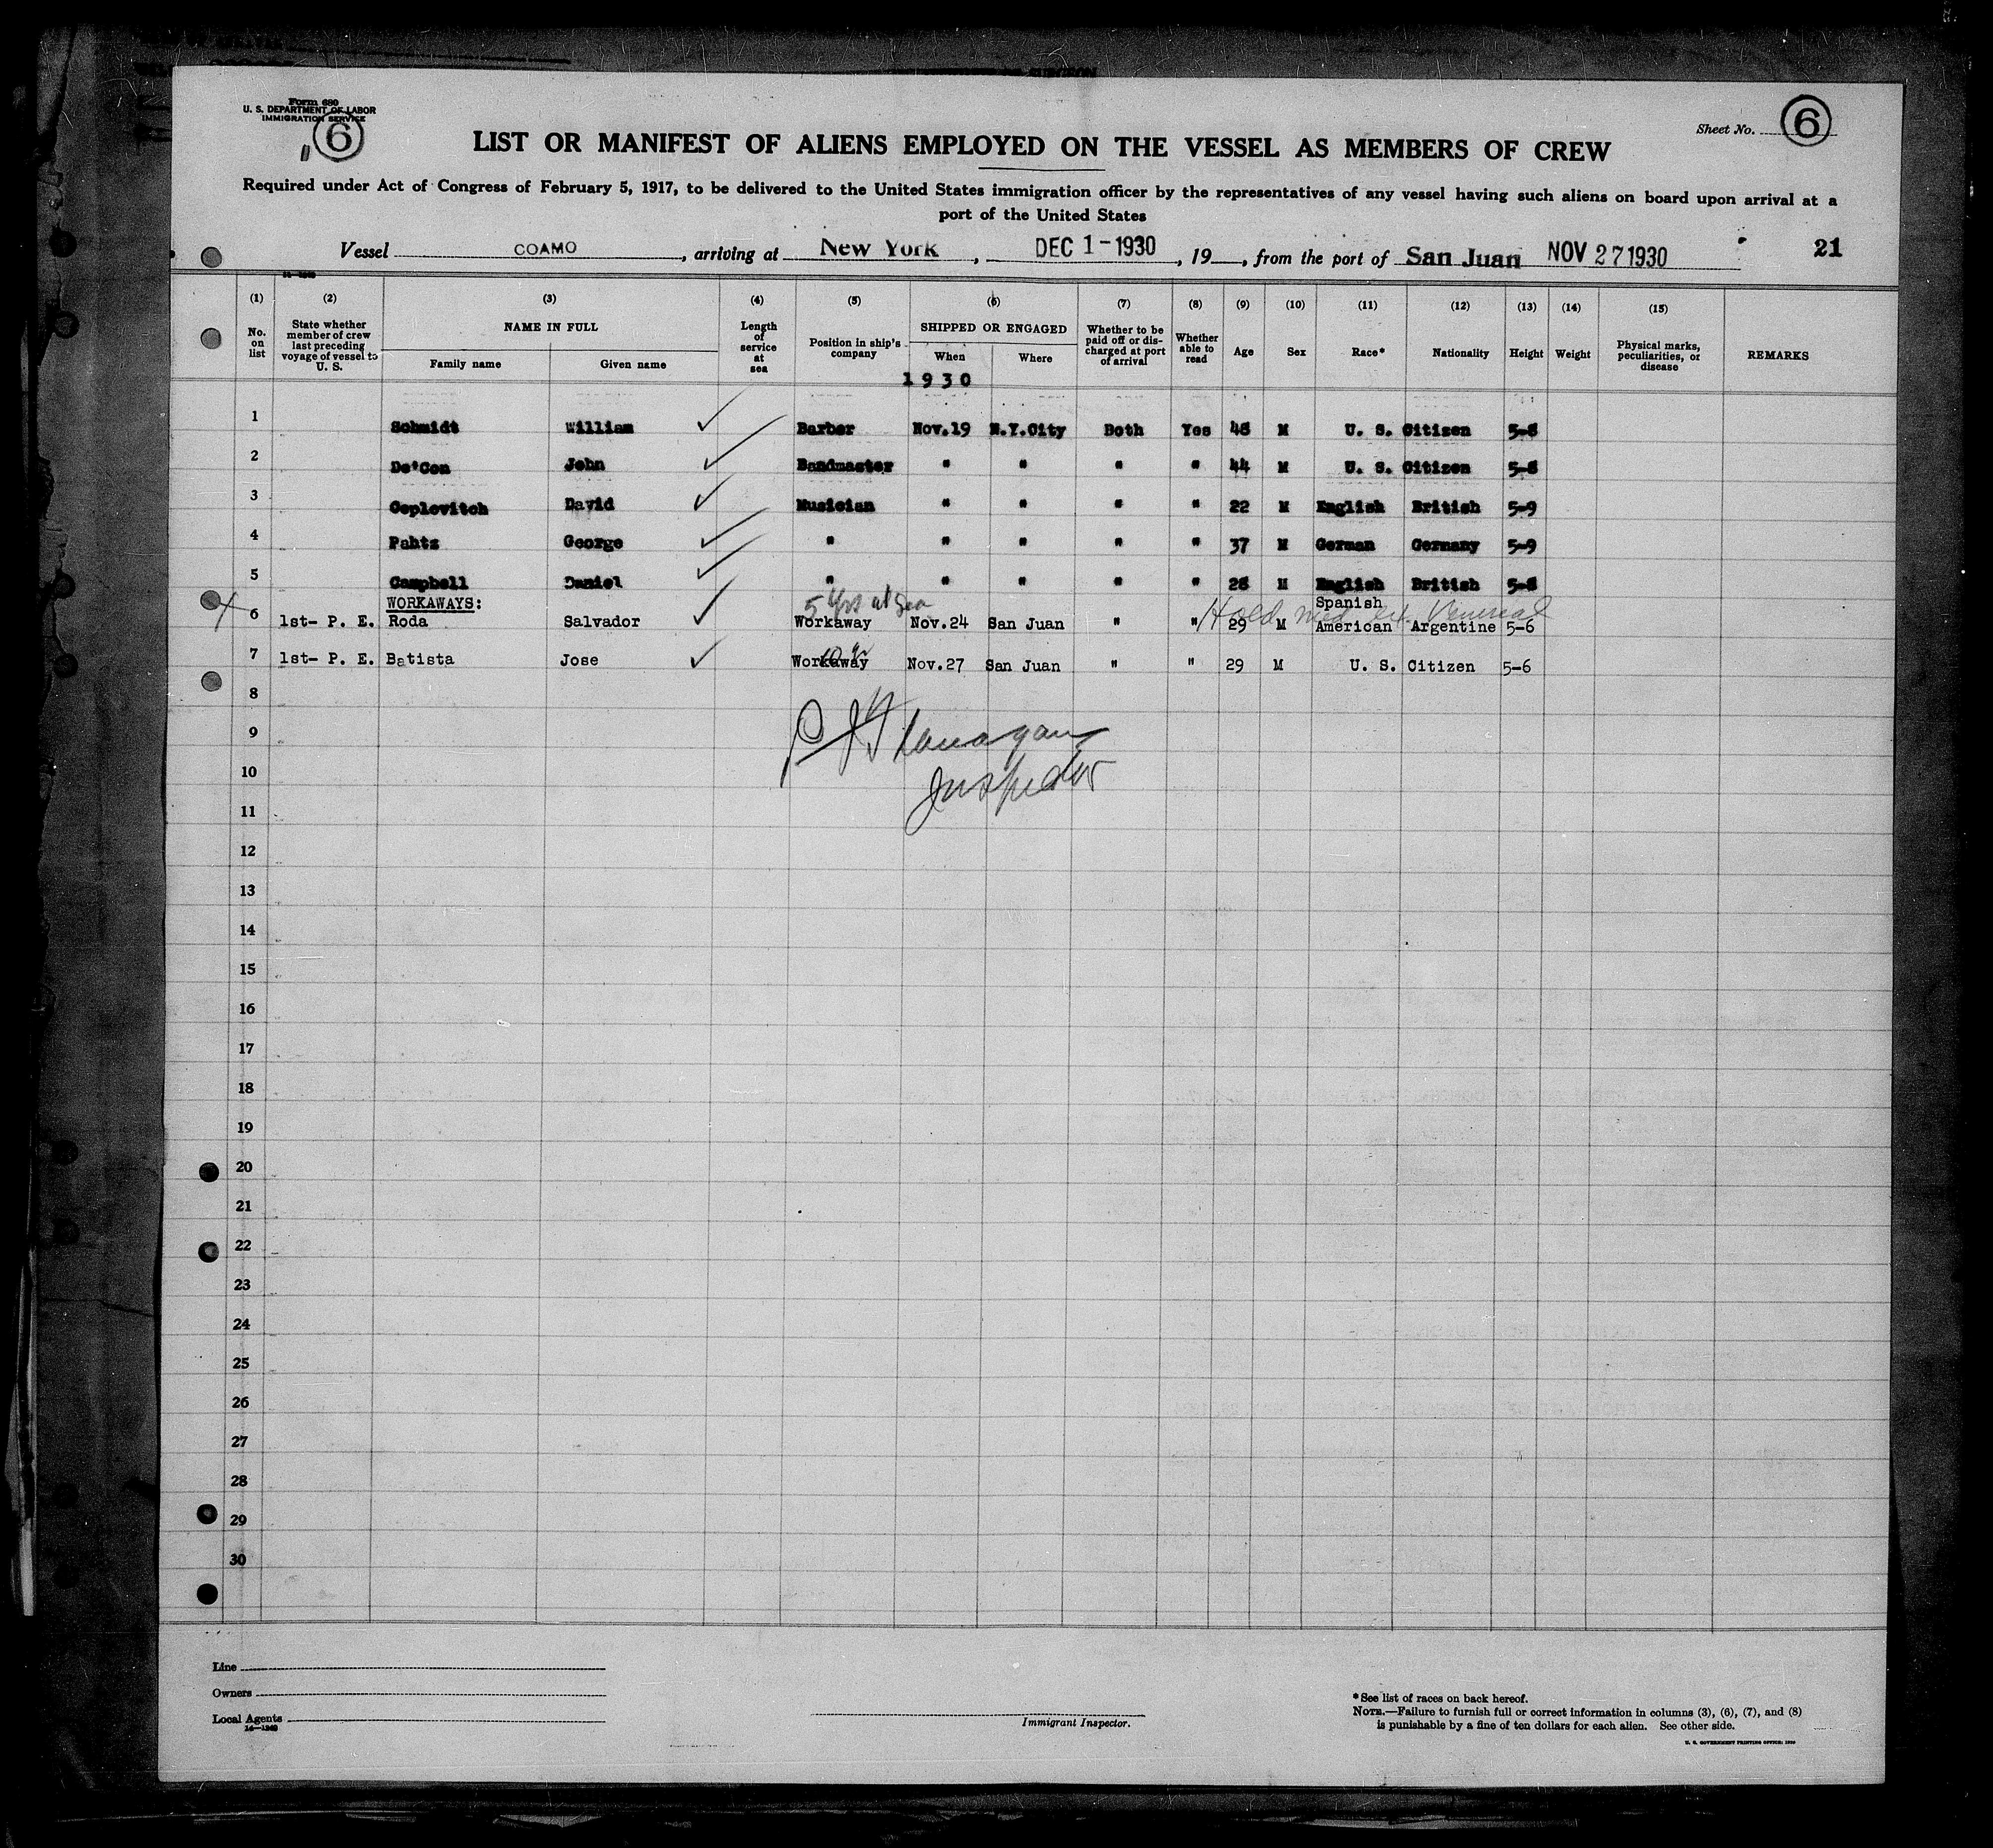 Form 680
U. S. DEPARTMENT OF LABOR
IMMIGRATION SERVICE
6
Sheet No. 6
LIST OR MANIFEST OF ALIENS EMPLOYED ON THE VESSEL AS MEMBERS OF CREW
Required under Act of Congress of February 5, 1917, to be delivered to the United States immigration officer by the representatives of any vessel having such aliens on board upon arrival at a
port of the United States
Vessel COAMO, arriving at New York, DEC 1-1930, 19__, from the port of San Juan NOV 27 1930 21
(1) (2) (3) (4) (5) (6) (7) (8) (9) (10) (11) (12) (13) (14) (15)
No. on list
State whether member of crew last preceding voyage of vessel to U. S.
NAME IN FULL
Family name Given name
Length of service at sea
Position in ship's company
SHIPPED OR ENGAGED
When Where
1930
Whether to be paid off or discharged at port of arrival
Whether able to read
Age Sex Race* Nationality Height Weight
Physical marks, peculiarities, or disease
REMARKS
1 Schmidt William Barber Nov.19 N.Y.City Both Yes 48 M U. S. Citizen 5-8
2 De'Con John Bandmaster " " " " 44 M U. S. Citizen 5-8
3 Ceplovitch David Musician " " " " 22 M English British 5-9
4 Pahtz George " " " " " 37 M German Germany 5-9
5 Campbell Daniel " " " " " 28 M English British 5-8
WORKAWAYS: 5 yrs at sea Spanish
6 1st- P. E. Roda Salvador Workaway Nov.24 San Juan " " 29 M American Argentine 5-6
Hold med. ex. Venereal
7 1st- P. E. Batista Jose Workaway Nov.27 San Juan " " 29 M U. S. Citizen 5-6
8
9 Flanagan
10 Inspector
11
12
13
14
15
16
17
18
19
20
21
22
23
24
25
26
27
28
29
30
Line
Owners
Local Agents
14—1240
Immigrant Inspector.
*See list of races on back hereof.
NOTE.—Failure to furnish full or correct information in columns (3), (6), (7), and (8)
is punishable by a fine of ten dollars for each alien. See other side.
U. S. GOVERNMENT PRINTING OFFICE: 1930